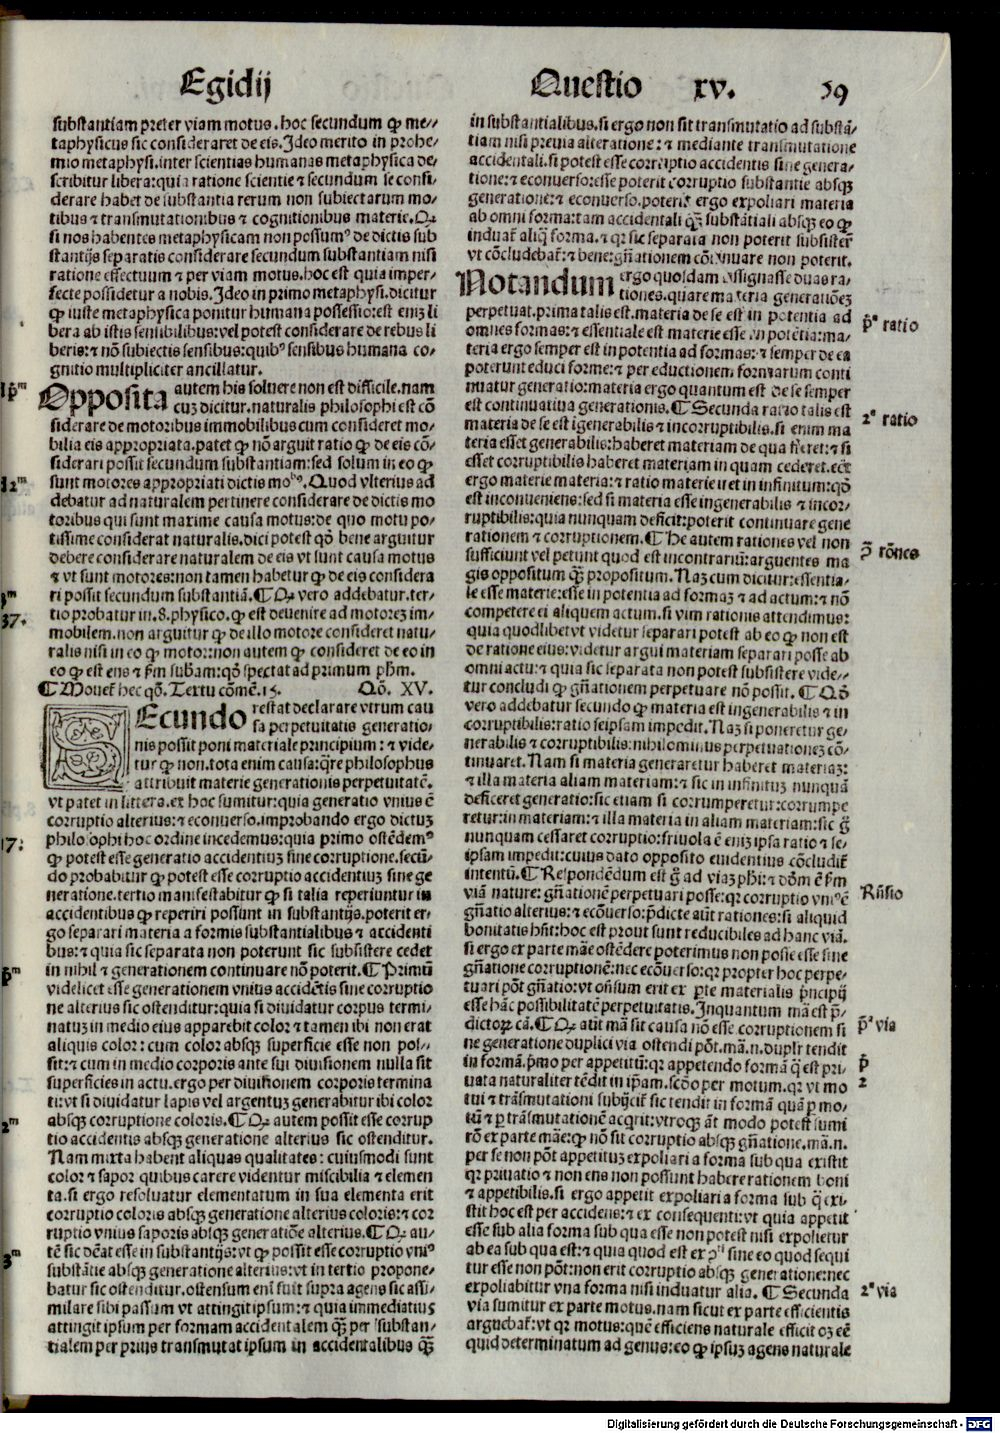 Egidij Questio xv. 59
substantiam preter viam motus. hoc secundum ꝙ me//
taphysicus sic consideraret de eis. Ideo merito in prohe/
mio metaphysi. inter scientias humanas metaphysica de/
scribitur libera: quia ratione scientie ⁊ secundum se consi/
derare habet de substantia rerum non subiectarum mo/
tibus ⁊ transmutationibus ⁊ cognitionibus materie. Qꝛ
si nos habentes metaphysicam non possumꝰ de dictis sub
stantijs separatis considerare secundum substantiam nisi
ratione effectuum ⁊ per viam motus. hoc est quia imper/
fecte possidetur a nobis. Ideo in primo metaphysi. dicitur
ꝙ iuste metaphysica ponitur humana possessio: est enĩ li
bera ab istis sensibilibus: vel potest considerare de rebus li
beris: ⁊ nõ subiectis sensibus: quibꝰ sensibus humana co/
gnitio multipliciter ancillatur.
1 p̃ᵐ Opposita autem his soluere non est difficile. nam
cuʒ dicitur. naturalis philosophi est cõ
siderare de motoribus immobilibus cum consideret mo/
bilia eis appropriata. patet ꝙ nõ arguit ratio ꝙ de eis cõ/
siderari possit secundum substantiam: sed solum in eo ꝙ
12ᵐ sunt motores appropriati dictis mobꝰ. Quod vlterius ad
debatur ad naturalem pertinere considerare de dictis mo
toribus qui sunt maxime causa motus: de quo motu po/
tissime considerat naturalis. dici potest qõ bene arguitur
debere considerare naturalem de eis vt sunt causa motus
⁊ vt sunt motores: non tamen habetur ꝙ de eis considera
3ᵐ ri possit secundum substantiã. ¶ Qꝛ vero addebatur. ter/
37. tio probatur in. 8. physico. ꝙ est deuenire ad motoreʒ im/
mobilem. non arguitur ꝙ de illo motore consideret natu/
ralis nisi in eo ꝙ motor: non autem ꝙ consideret de eo in
eo ꝙ est ens ⁊ fm subãm: qõ spectat ad primum phm.
¶ Mouet hec qõ. Textu cõmẽ. 15. Qõ. XV.
SEcundo restat declarare vtrum cau
sa perpetuitatis generatio/
nis possit poni materiale principium: ⁊ vide/
tur ꝙ non. tota enim causa: q̃re philosophus
attribuit materie generationis perpetuitatẽ.
vt patet in littera. ex hoc sumitur: quia generatio vnius ẽ
corruptio alterius: ⁊ econuerso. improbando ergo dictuʒ
17: philosophi hoc ordine incedemus: quia primo ostẽdemꝰ
ꝙ potest esse generatio accidentiuʒ sine corruptione. secũ/
do probabitur ꝙ potest esse corruptio accidentiuʒ sine ge
neratione. tertio manifestabitur ꝙ si talia reperiuntur in
accidentibus ꝙ reperiri possunt in substantijs. poterit er/
go separari materia a formis substantialibus ⁊ accidenti
bus: ⁊ quia sic separata non poterunt sic subsistere cedet
p̃ᵐ in nihil ⁊ generationem continuare nõ poterit. ¶ Primũ
videlicet esse generationem vnius accidẽtis sine corruptio
ne alterius sic ostenditur: quia si diuidatur corpus termi/
natuʒ in medio eius apparebit color ⁊ tamen ibi non erat
aliquis color: cum color absqʒ superficie esse non pos//
sit: ⁊ cum in medio corporis ante sui diuisionem nulla sit
superficies in actu. ergo per diuisionem corporis termina
ti: vt si diuidatur lapis vel argentuʒ generabitur ibi color
2ᵐ absqʒ corruptione coloris. ¶ Qꝛ autem possit esse corrup
tio accidentis absqʒ generatione alterius sic ostenditur.
Nam mixta habent aliquas qualitates: cuiusmodi sunt
color ⁊ sapor quibus carere videntur miscibilia ⁊ elemen
ta. si ergo resoluatur elementatum in sua elementa erit
corruptio coloris absqʒ generatione alterius coloris: ⁊ cor
ruptio vnius saporis absqʒ generatiõe alterius. ¶ Qꝛ au/
3ᵐ tẽ sic debeat esse in substantijs: vt ꝙ possit esse corruptio vniꝰ
substãtie absqʒ generatione alterius: vt in tertio propone/
batur sic ostenditur. ostensum enĩ fuit supra agens sic assi/
milare sibi passum vt attingit ipsum: ⁊ quia immediatius
attingit ipsum per formam accidentalem q̃ʒ per substan/
tialem per prius transmutat ipsum in accidentalibus q̃ʒ
in substantialibus. si ergo non sit transmutatio ad substã/
tiam nisi preuia alteratione: ⁊ mediante transmutatione
accidentali. si potest esse corruptio accidentis sine genera/
tione: ⁊ econuerso: esse poterit corruptio substantie absqʒ
generatione: ⁊ econuerso. poterit ergo expoliari materia
ab omni forma: tam accidentali q̃ʒ substãtiali absqʒ eo ꝙ
induat̃ aliq̃ forma. ⁊ qꝛ sic separata non poterit subsistere
vt cõcludebat̃: ⁊ bene: gñationem cõtinuare non poterit.
Notandum ergo quosdam assignasse duas ra/
tiones. quare materia generationẽʒ
perpetuat. prima talis est. materia de se est in potentia ad p̃ᵃ ratio
omnes formas: ⁊ essentiale est materie esse in potẽtia: ma/
teria ergo semper est in potentia ad formas: ⁊ semper de ea
poterunt educi forme: ⁊ per eductionem formarum conti
nuatur generatio: materia ergo quantum est de se semper
est continuatiua generationis. ¶ Secunda ratio talis est 2ᵃ ratio
materia de se est igenerabilis ⁊ incorruptibilis. si enim ma
teria esset generabilis: haberet materiam de qua fieret: ⁊ si
esset corruptibilis haberet materiam in quam cederet. eẽt
ergo materie materia: ⁊ ratio materie iret in infinitum: qõ
est inconueniens: sed si materia esse ingenerabilis ⁊ incor/
ruptibilis: quia nunquam deficit: poterit continuare gene
rationem ⁊ corruptionem. ¶ He autem rationes vel non p̃ rõnes
sufficiunt vel petunt quod est incontrariũ: arguentes ma
gis oppositum q̃ʒ propositum. Naʒ cum dicitur: essentia/
le esse materie: esse in potentia ad formaʒ ⁊ ad actum: ⁊ nõ
competere ei aliquem actum. si vim rationis attendimus:
quia quodlibet vt videtur separari potest ab eo ꝙ non est
de ratione eius: videtur argui materiam separari posse ab
omni actu: ⁊ quia sic separata non potest subsistere vide//
tur concludi ꝙ gñationem perpetuare nõ possit. ¶ Qõ
vero addebatur secundo ꝙ materia est ingenerabilis ⁊ in
corruptibilis: ratio seipsam impedit. Naʒ si poneretur ge/
nerabilis ⁊ corruptibilis: nihilominus perpetuationeʒ cõ/
tinuaret. Nam si materia generaretur haberet materiaʒ:
⁊ illa materia aliam materiam: ⁊ sic in infinituʒ nunquam
deficeret generatio: sic etiam si corrumperetur: corrumpe
retur: in materiam: ⁊ illa materia in aliam materiam: sic g̃
nunquam cessaret corruptio: friuola ẽ eniʒ ipsa ratio ⁊ se/
ipsam impedit: cuius dato opposito euidentius cõcludit̃
intentũ. ¶ Respondẽdum est g̃ ad viaʒ phi: ⁊ dõm ẽ fm Rñsio
viã nature: gñationẽ perpetuari posse: qꝛ corruptio vniꝰ ẽ
gñatio alterius: ⁊ ecõuerso: p̃dicte aũt rationes: si aliquid
bonitatis hñt: hoc est prout sunt reducibiles ad hanc viã.
si ergo ex parte mãe ostẽdere poterimus non posse esse sine
gñatione corruptionẽ: nec ecõuerso: qꝛ propter hoc perpe/
tuari põt gñatio: vt oñsum erit ex p̱te materialis p̃ncipij
esse hãc possibilitatẽ perpetuitatis. Inquantum mã est p̃/
dictoꝝ cã. ¶ Qꝛ aũt mã sit causa nõ esse corruptionem si p̃ᵃ via
ne generatione duplici via ostendi põt. mã. n. duplr̃ tendit
in formã. p̃mo per appetitũ: qꝛ appetendo formã q̃ est pri/ p̃
uata naturaliter tẽdit in ip̃am. scõo per motum. qꝛ vt mo 2
tui ⁊ trãsmutationi subijcit̃ sic tendit in formã quã p̱ mo/
tũ ⁊ p̱ trãsmutationẽ acq̃rit: vtroqʒ ãt modo potest sumi
rõ ex parte mãe: ꝙ nõ sit corruptio absqʒ gñatione. mã. n.
per se non põt appetitũʒ expoliari a forma sub qua existit
qꝛ priuatio ⁊ non ens non possunt habere rationem boni
⁊ appetibilis. si ergo appetit expoliari a forma sub q̃ exi/
stit hoc est per accidens: ⁊ ex consequenti: vt quia appetit
esse sub alia forma sub qua esse non potest nisi expolietur
ab ea sub qua est: ⁊ quia quod est ex ꝯñti sine eo quod sequi
tur esse non põt: non erit corruptio absqʒ generatione: nec
expoliabitur vna forma nisi induatur alia. ¶ Secunda 2ᵃ via
via sumitur ex parte motus. nam sicut ex parte efficientis
arguebat̃: vt qꝛ motus: quẽ efficiens naturale efficit oʒ eẽ
quid determinatum ad genus: eo ꝙ ipsuʒ agens naturale
Digitalisierung gefördert durch die Deutsche Forschungsgemeinschaft - DFG